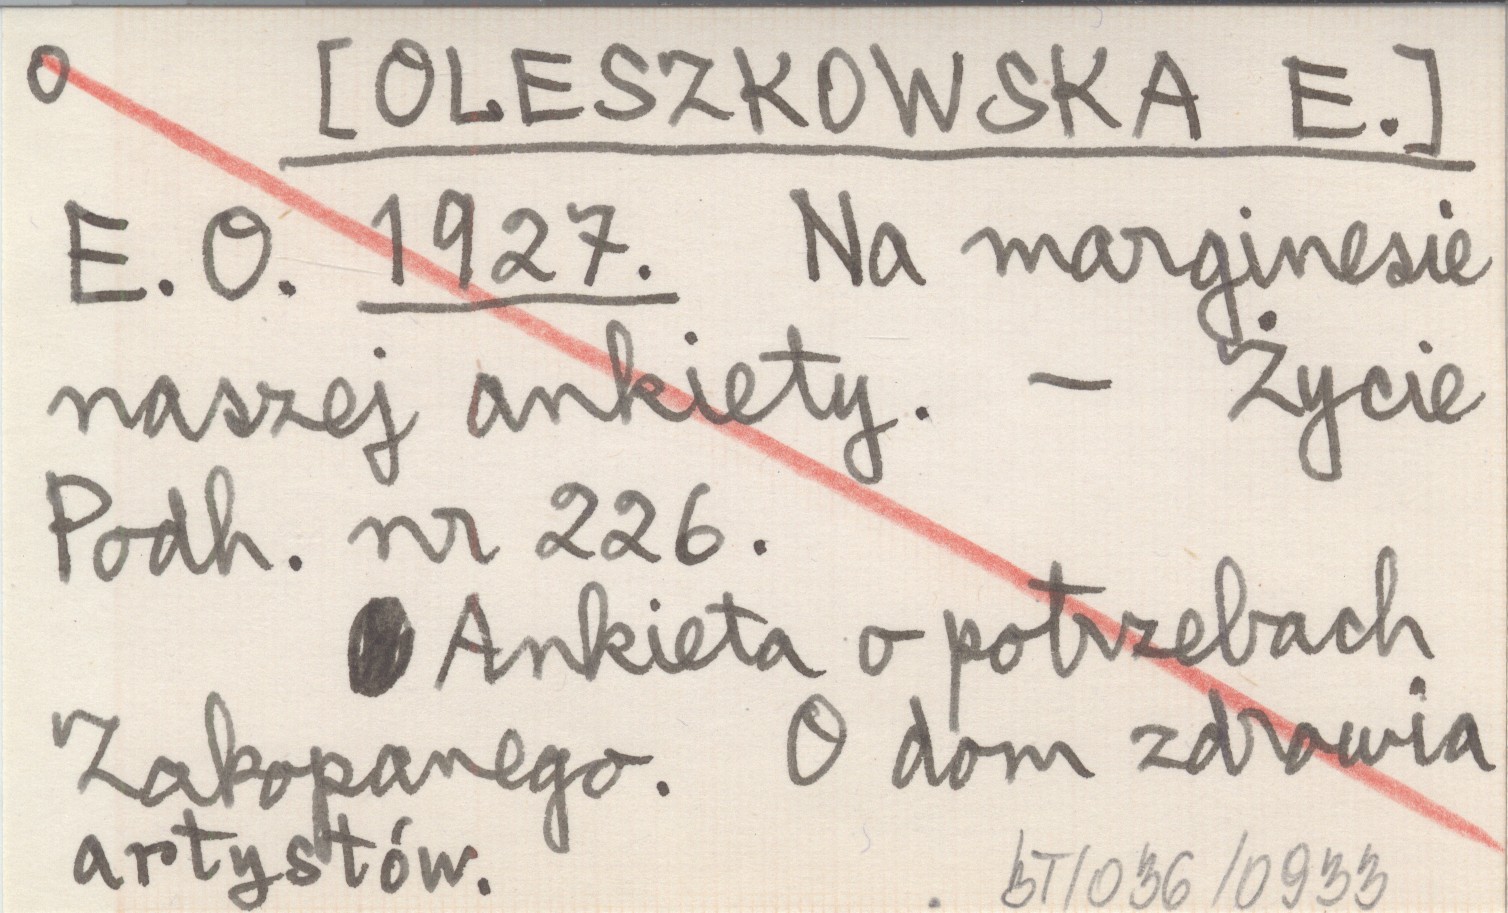 o [OLESZKOWSKA E.]
E. O. 1927. Na marginesie
naszej ankiety. – Życie
Podh. nr 226.
Ankieta o potrzebach
Zakopanego. O dom zdrowia
artystów.
BT/036/0933